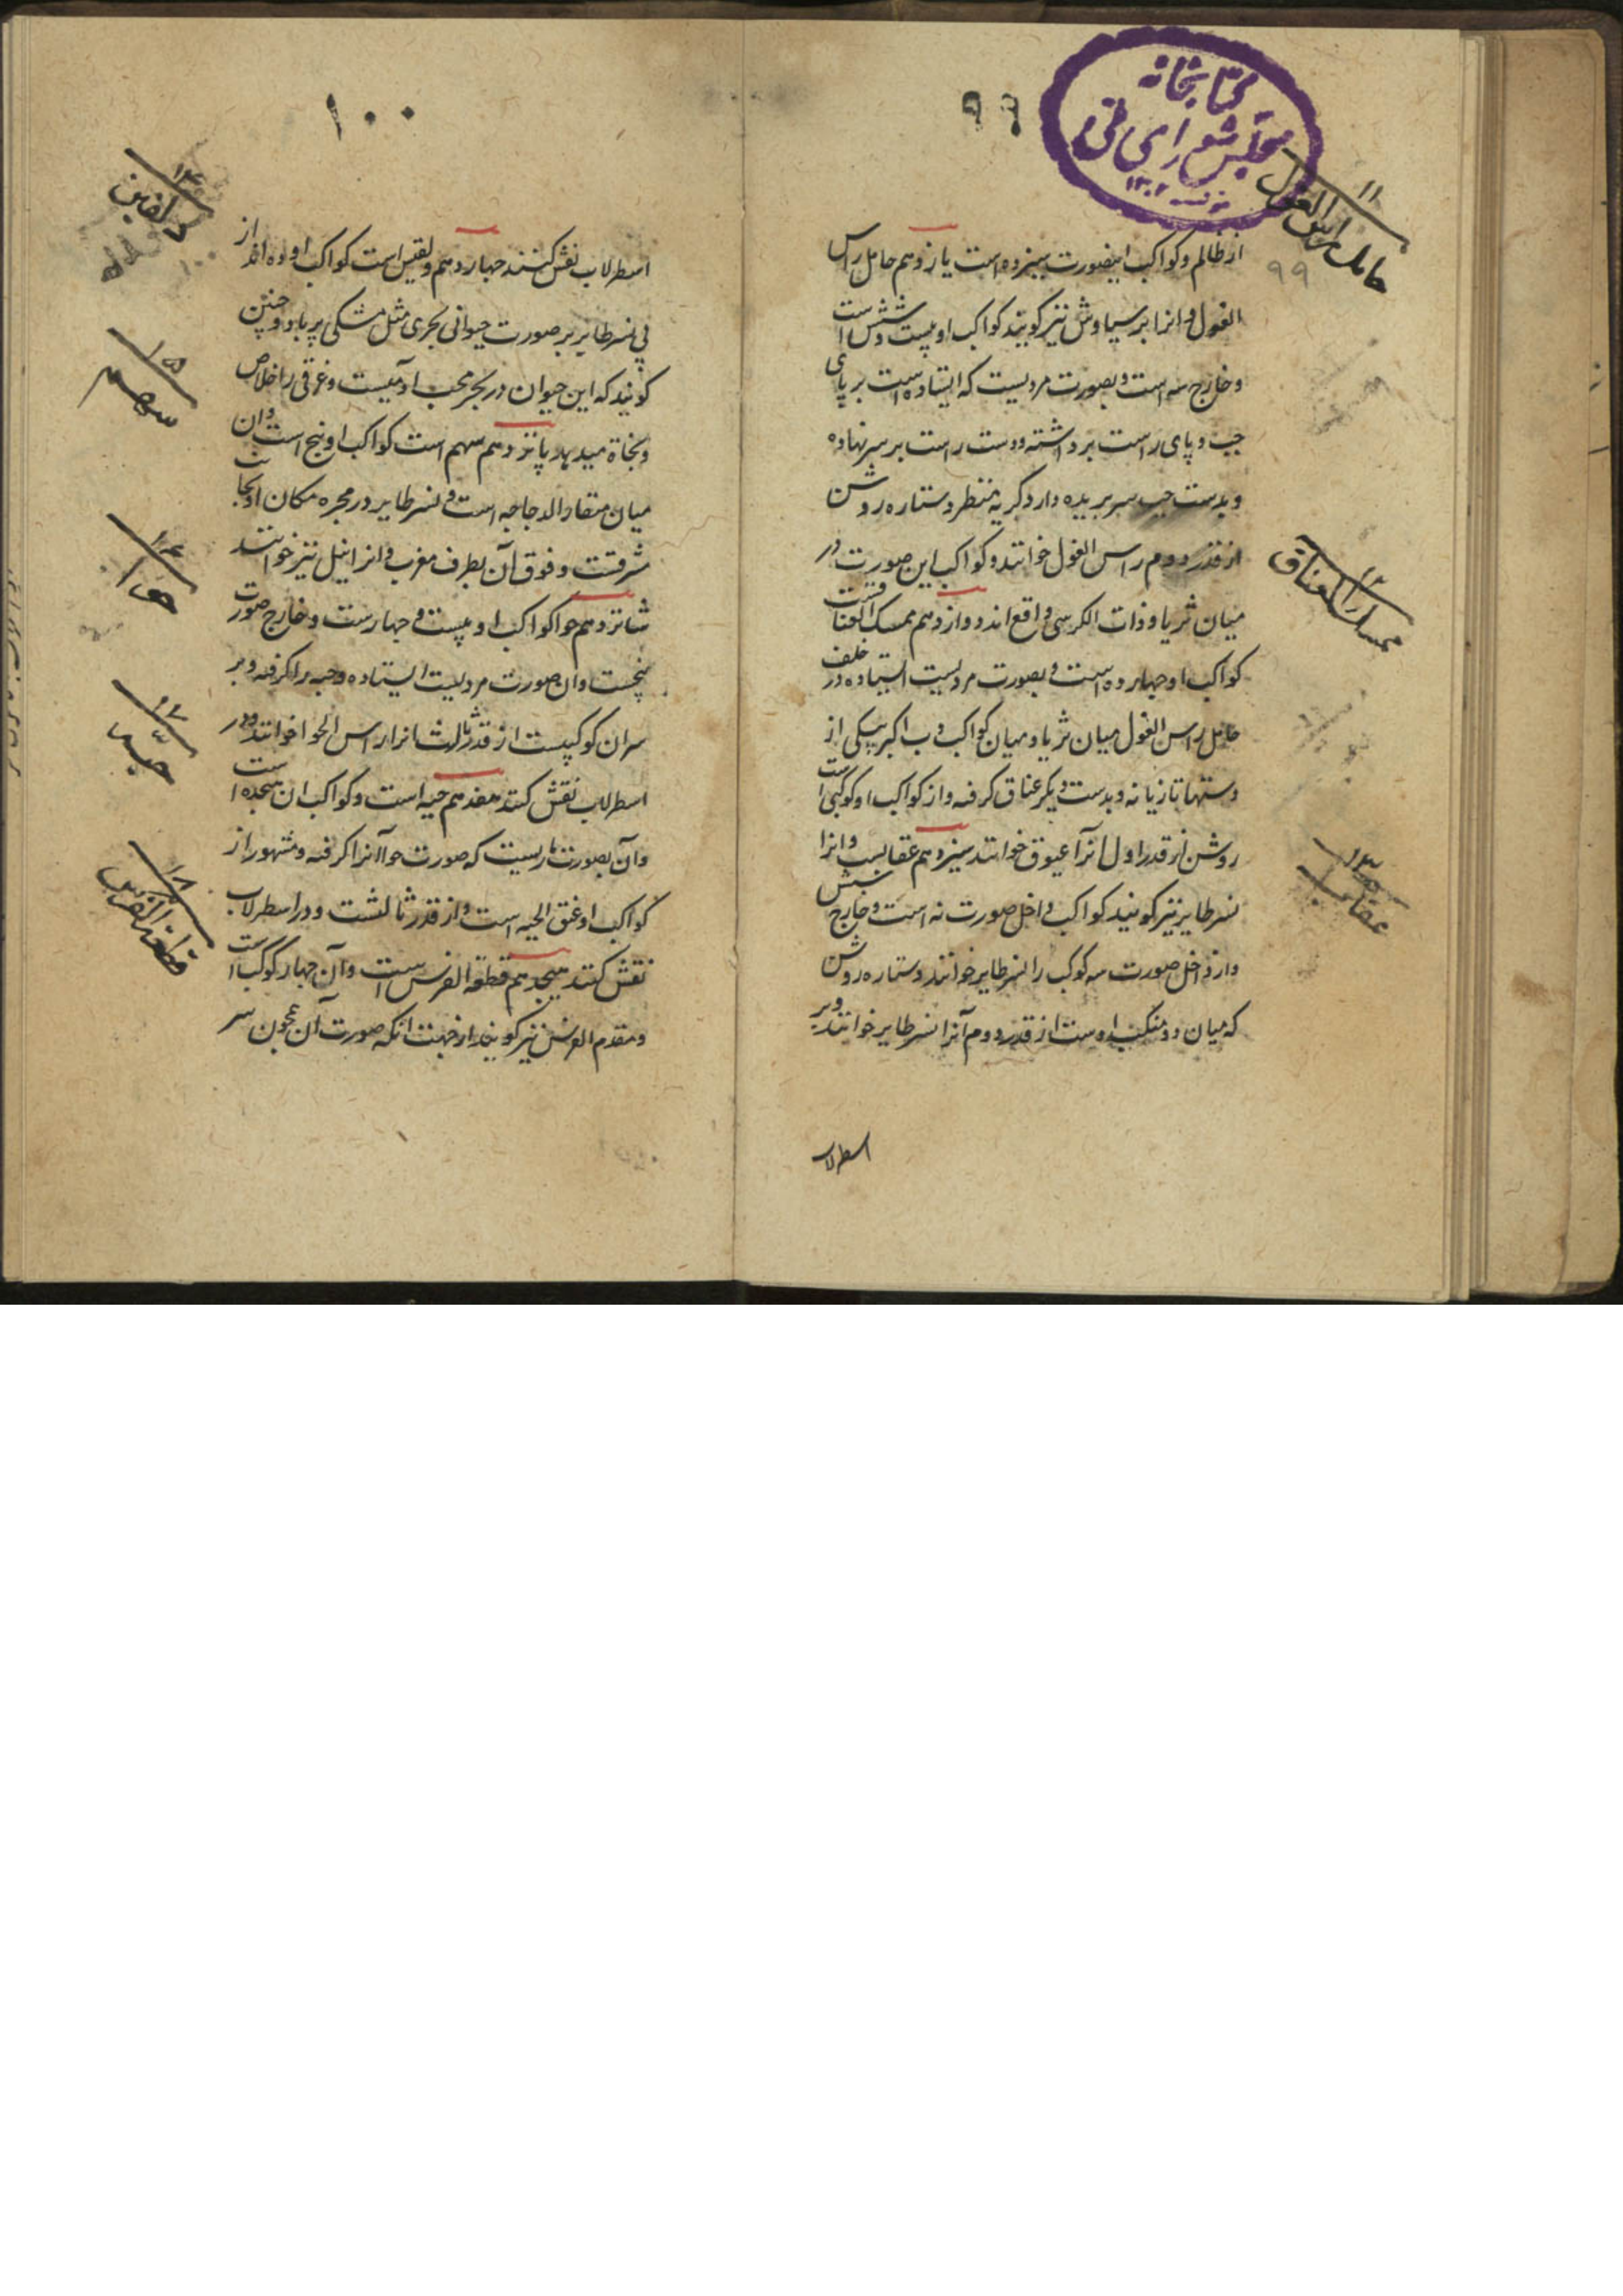 کتابخانه
مجلس شورای ملی
۱۳۰۲
۹۹
از ظالم و کواکب اینصورت سیزده است یازدهم حامل راس
الغول و انرا برسیاوش نیز کویند کواکب او بیست و شش است
و خارج سه است و بصورت مردیست که ایستاده است بر پای
چپ و پای راست برداشته و دست راست بر سر نهاده
و بدست چپ سر بریده دارد کریه منظر و ستاره روشن
از قدر دوم راس الغول خوانند و کواکب این صورت در
میان ثریا و ذات الکرسی واقع اند دوازدهم ممسک العنا
کواکب او چهارده است و بصورت مردیست ایستاده در خلف
حامل راس الغول میان ثریا و میان کواکب دب اکبر بیکی از
دستها تازیانه و بدست دیکر عناق کرفته و از کواکب او کوکبی است
روشن از قدر اول انرا عیوق خوانند سیزدهم عقابست و انرا
نسر طایر نیز کویند کواکب داخل صورت نه است و خارج شش
و از داخل صورت سه کوکب را نسر طایر خوانند و ستاره روشن
که میان دو منکب اوست از قدر دوم آنرا نسر طایر خوانند و بر
اسطرلاب
۱۱
حامل راس الغول
۹۹
۱۲
ممسک العناق
۱۳
عقاب
۱۰۰
اسطرلاب نقش کنند چهاردهم دلفین است کواکب او ده اند از
پی نسر طایر بر صورت حیوانی بحری مثل مشکی پر باد و چنین
کویند که این حیوان در بحر محب ادمیست و غرقی را خلاص
و نجاة میدهد پانزدهم سهم است کواکب او پنج است و ان
میان منقار الدجاجه است و نسر طایر در مجره مکان او بجانب
شرقست و فوق آن بطرف مغرب و انرا نیل نیز خوانند
شانزدهم حوا کواکب او بیست و چهارست و خارج صورت
پنجست و ان صورت مردیست ایستاده و حیه را کرفته و بر
سر ان کوکبیست از قدر ثالث انرا راس الحوا خوانند و در
اسطرلاب نقش کنند هفدهم حیه است و کواکب ان هجده است
و آن بصورت ماریست که صورت حوا آنرا کرفته و مشهور از
کواکب او عنق الحیه است و از قدر ثالثست و در اسطرلاب
نقش کنند هیجدهم قطعه الفرس است و آن چهار کوکب است
و مقدم الفرس نیز کویند از جهت انکه صورت آن چون سر
۱۴
دلفین
۱۵
سهم
۱۶
حوا
۱۷
حیه
۱۸
قطعة الفرس